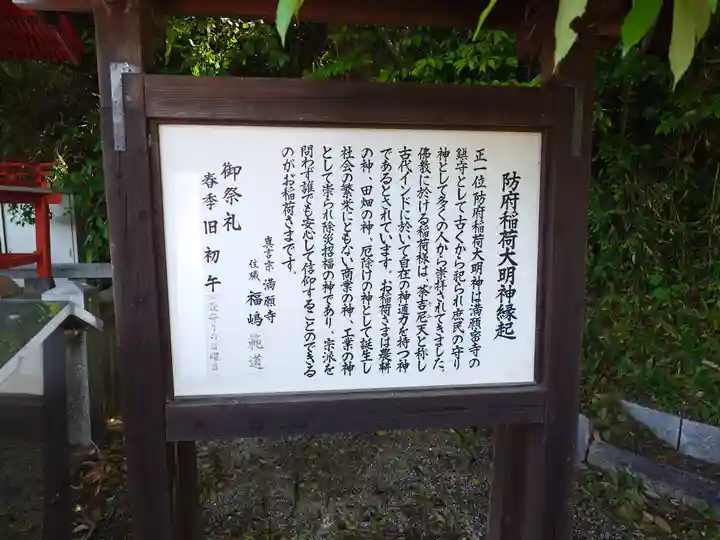 防府稲荷大明神縁起
正一位防府稲荷大明神は満願寺の
鎮守として古くから祀られ庶民の守り
神として多くの人から崇拝されてきました。
佛教に於ける稲荷様は、荼吉尼天と称し
古代インドに於いて自在の神通力を持つ神
であるとされています。お稲荷さまは農耕
の神、田畑の神、厄除けの神として誕生し
社会の繁栄にともない商業の神、工業の神
として崇られ除災招福の神であり、宗派を
問わず誰でも安心して信仰することのできる
のがお稲荷さまです。
真言宗 満願寺
住職 福嶋 範道
御祭礼
春季 旧初午